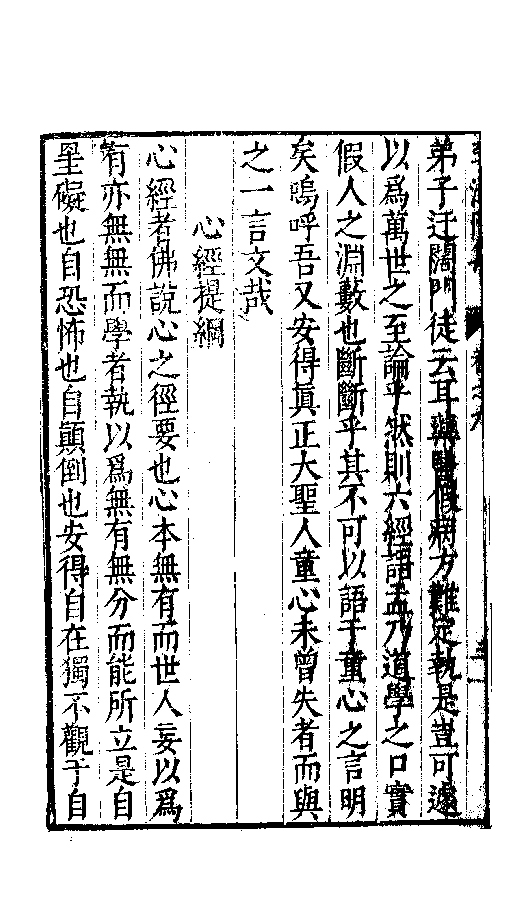 弟子迂闊門徒云耳藥醫假病方難定執是豈可遽
以爲萬世之至論乎然則六經語孟乃道學之口實
假人之淵藪也斷斷乎其不可以語于童心之言明
矣嗚呼吾又安得眞正大聖人童心未曾失者而與
之一言文哉
心經提綱
心經者佛說心之徑要也心本無有而世人妄以爲
有亦無無而學者執以爲無有無分而能所立是自
罣礙也自恐怖也自顛倒也安得自在獨不觀于自